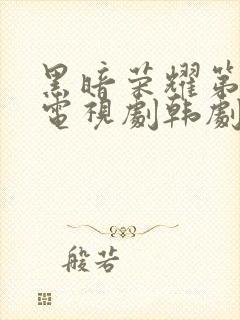 黑暗荣耀第
電視劇韩劇
般若